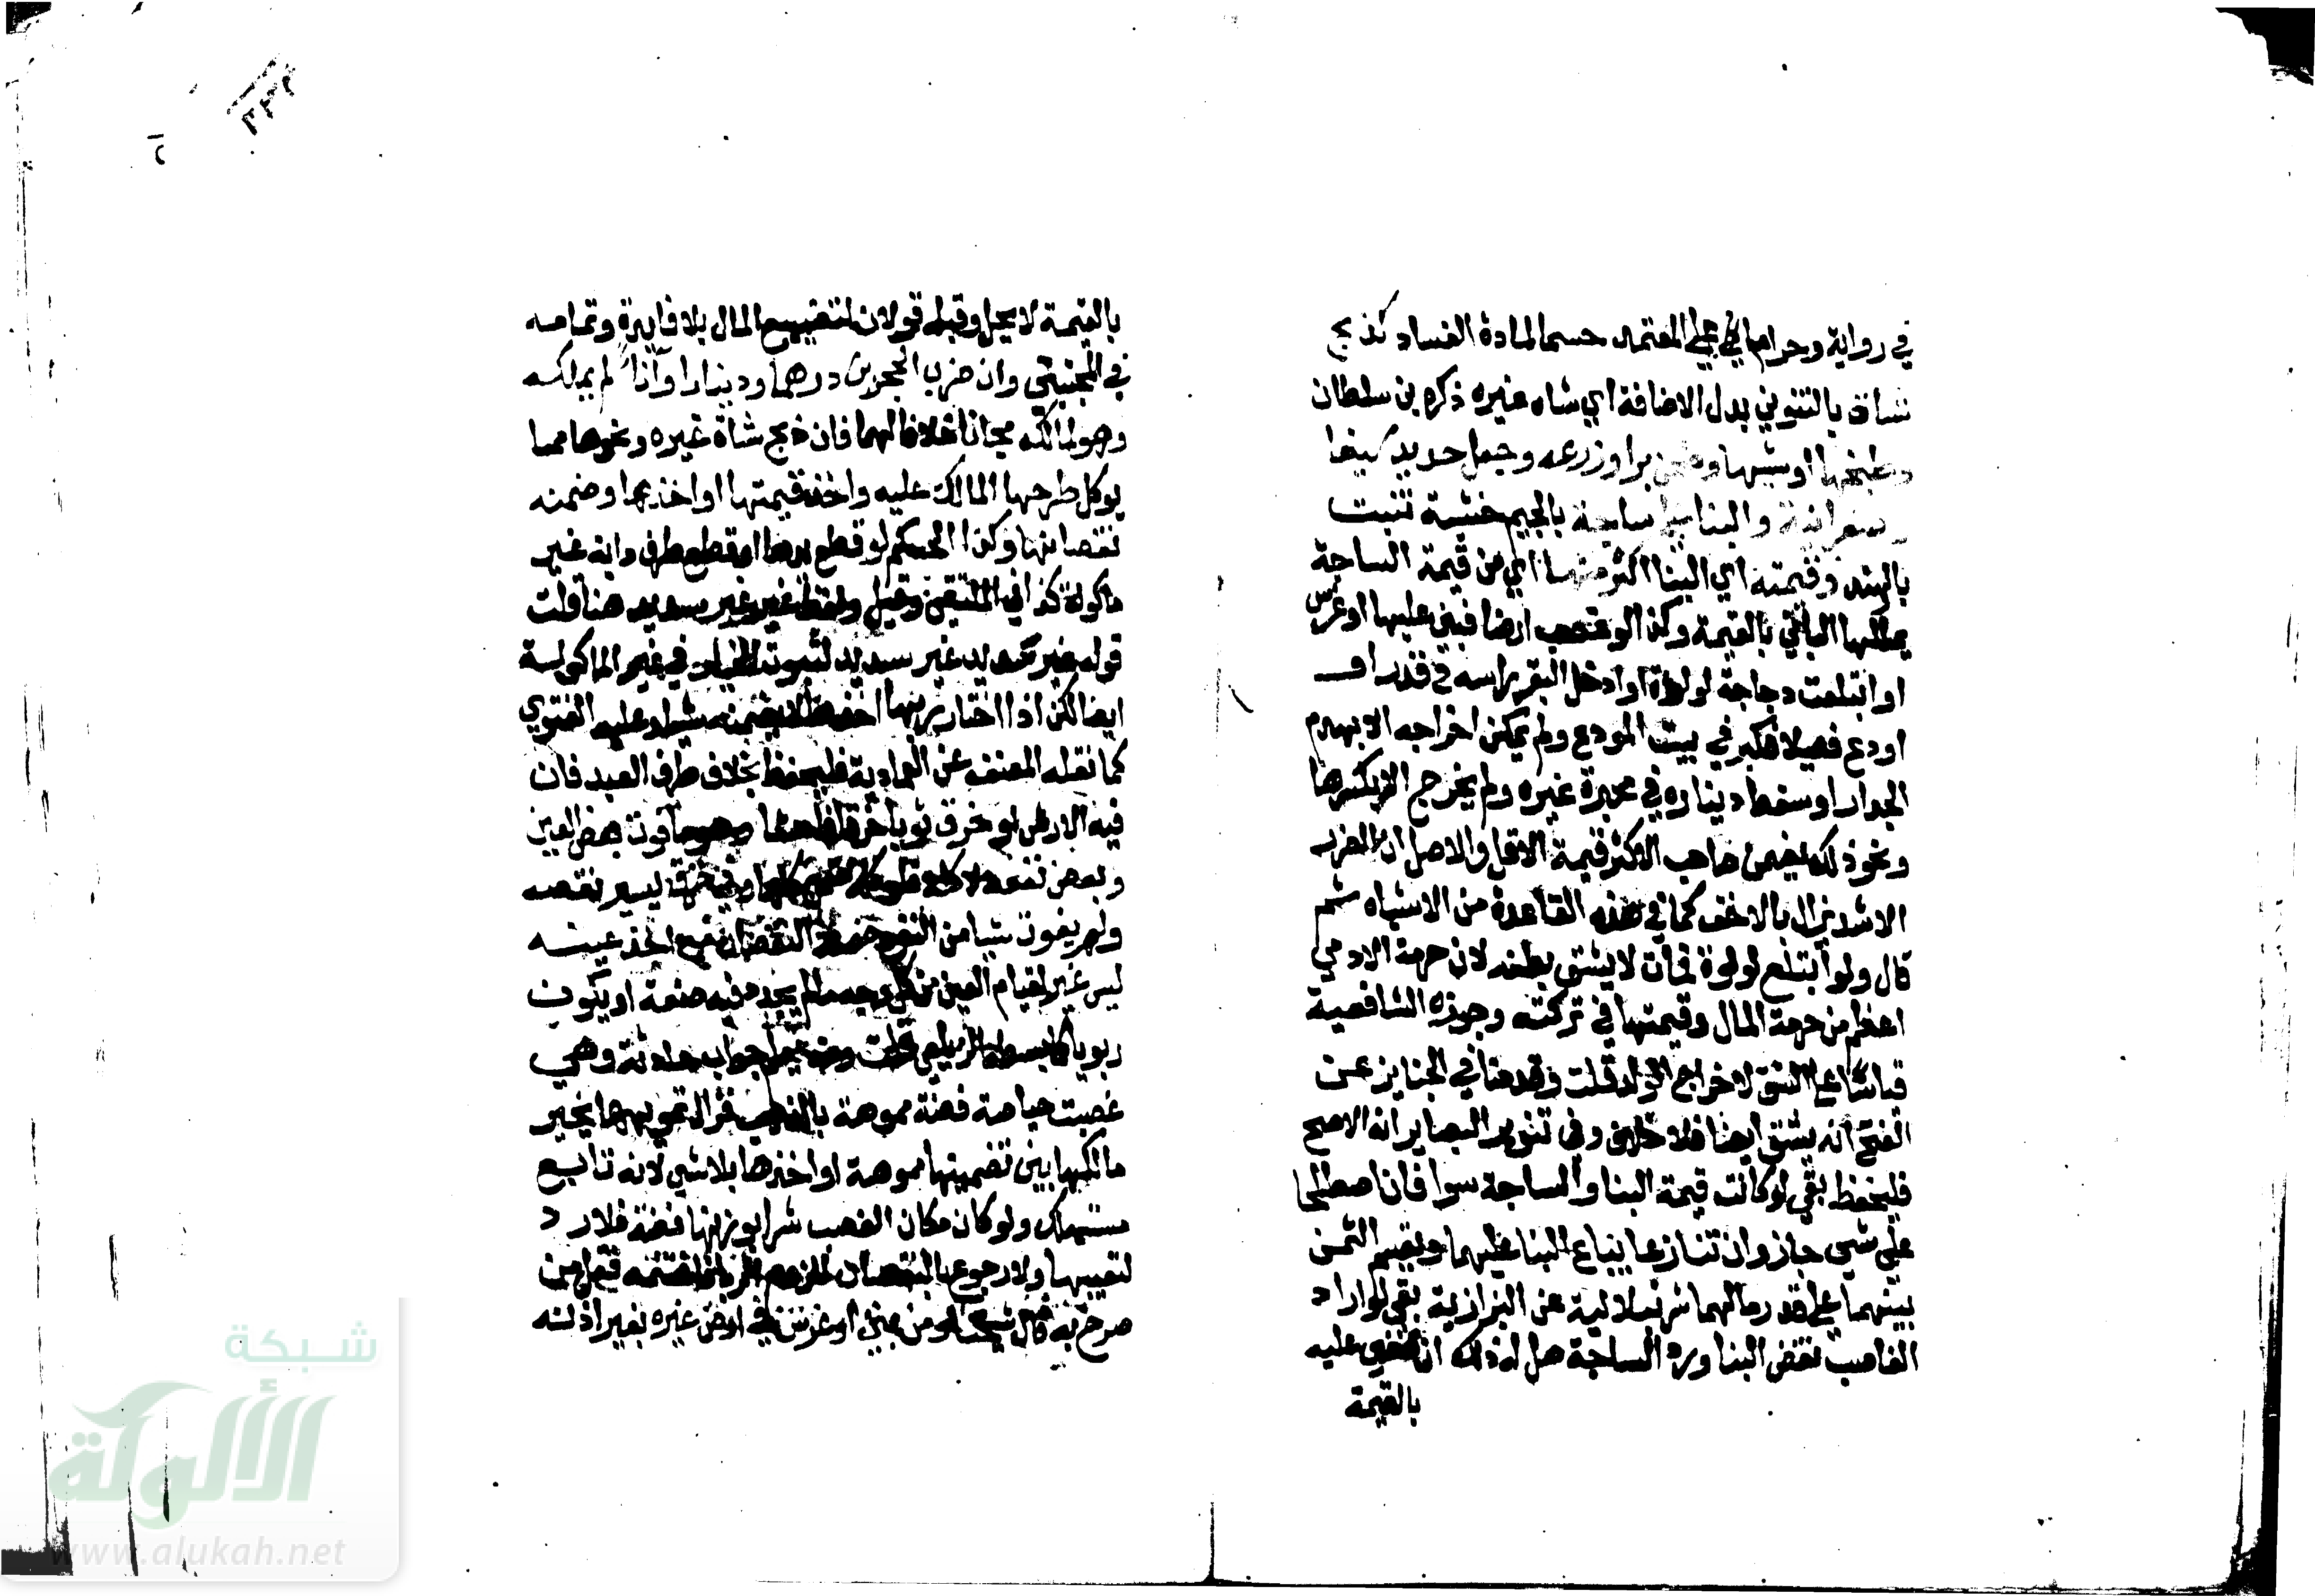 في رواية وحرام في على المعتمد حسما لمادة الفساد كذبح
شاة بالتنوين بدل الاضافة اي شاه غيره ذكره بن سلطان
وطبخها او شيها وطحن بر او زرعه وجعل حديد سيفا
والبنا على ساجة بالجيم خشبة تنبت
بالهند وقيمته اي البنا اكثر منها اي من قيمة الساجة
يملكها الباني بالقيمة وكذا لو غصب ارضا فبني عليها او غرس
او ابتلعت دجاجة لولوة او ادخل البقر راسه في قدر او
اودع فصيلا فكبر في بيت المودع ولم يمكن اخراجه الا بهدم
الجدار او سقط ديناره في محبرة غيره ولم يخرج الا بكسرها
ونحو ذلك يضمن صاحب الاكثر قيمة الاقل والاصل ان الضرر
الاشد يزال بالاخف كما في هذه القاعدة من الاشباه ثم
قال ولو ابتلع لولوة فمات لا يشق بطنه لان حرمة الادمي
اعظم من حرمة المال وقيمتها في تركته وجوزه الشافعية
قياسا على الشق لاخراج الولد قلت وقدمنا في الجنايز عن
الفتح انه يشق ايضا فلا خلاف وفي تنوير البصاير انه الاصح
فليحفظ بقي لو كانت قيمة البنا والساجة سوا فان اصطلحا
على شي جاز وان تنازعا يباع البنا عليهما ويقسم الثمن
بينهما على قدر مالهما شرنبلالية عن البزازية بقي لو اراد
الغاصب نقض البنا ورد الساجة هل له ذلك ان قضي عليه
بالقيمة
بالقيمة لا يحل وقبله قولان لتضييع المال بلا فايدة وتمامه
في المجتبى وان ضرب الحجرين درهما ودينارا وآنا لم يملكه
وهو لمالكه مجانا خلافا لهما فان ذبح شاة غيره ونحوها مما
يوكل طرحها المالك عليه واخذ قيمتها او اخذها وضمنه
نقصانها وكذا الحكم لو قطع يدها او قطع طرف دابة غير
ماكولة كذا في الملتقى وقيل ولفظ غير غير سديد هنا قلت
قوله غير سديد غير سديد لثبوت الخيار في غير الماكولة
ايضا لكن اذا اختار ربها اخذها لا يضمنه شيا وعليه الفتوي
كما نقله المصنف عن العمادية فليحفظ بخلاف طرف العبد فان
فيه الارش او خرق ثوبا خرقا فاحشا وهو ما فوت بعض العين
وبعض نفعه لا كله فلو كله ضمن كلها وفي خرق يسير نقصه
ولم يفوت شيا من النفع ضمنه النقصان مع اخذ عينه
ليس غير لقيام العين من كل وجه ما لم يجدد فيه صنعة او يكون
ربويا كما بسطه الزيلعي قلت ومنه يعلم جواب حادثة وهي
غصبت حياصة فضة مموهة بالذهب فزال تمويهها يخير
مالكها بين تضمينها مموهة او اخذها بلا شي لانه تابع
مستهلك ولو كان مكان الغصب شرا بوزنها فضة فلا رد
لتعييبها ولا رجوع بالنقصان للزوم الربا فاغتنمه فقل من
صرح به قال شيخنا ومن بنى او غرس في ارض غيره بغير اذنه
٢
شبكة
الألوكة
www.alukah.net